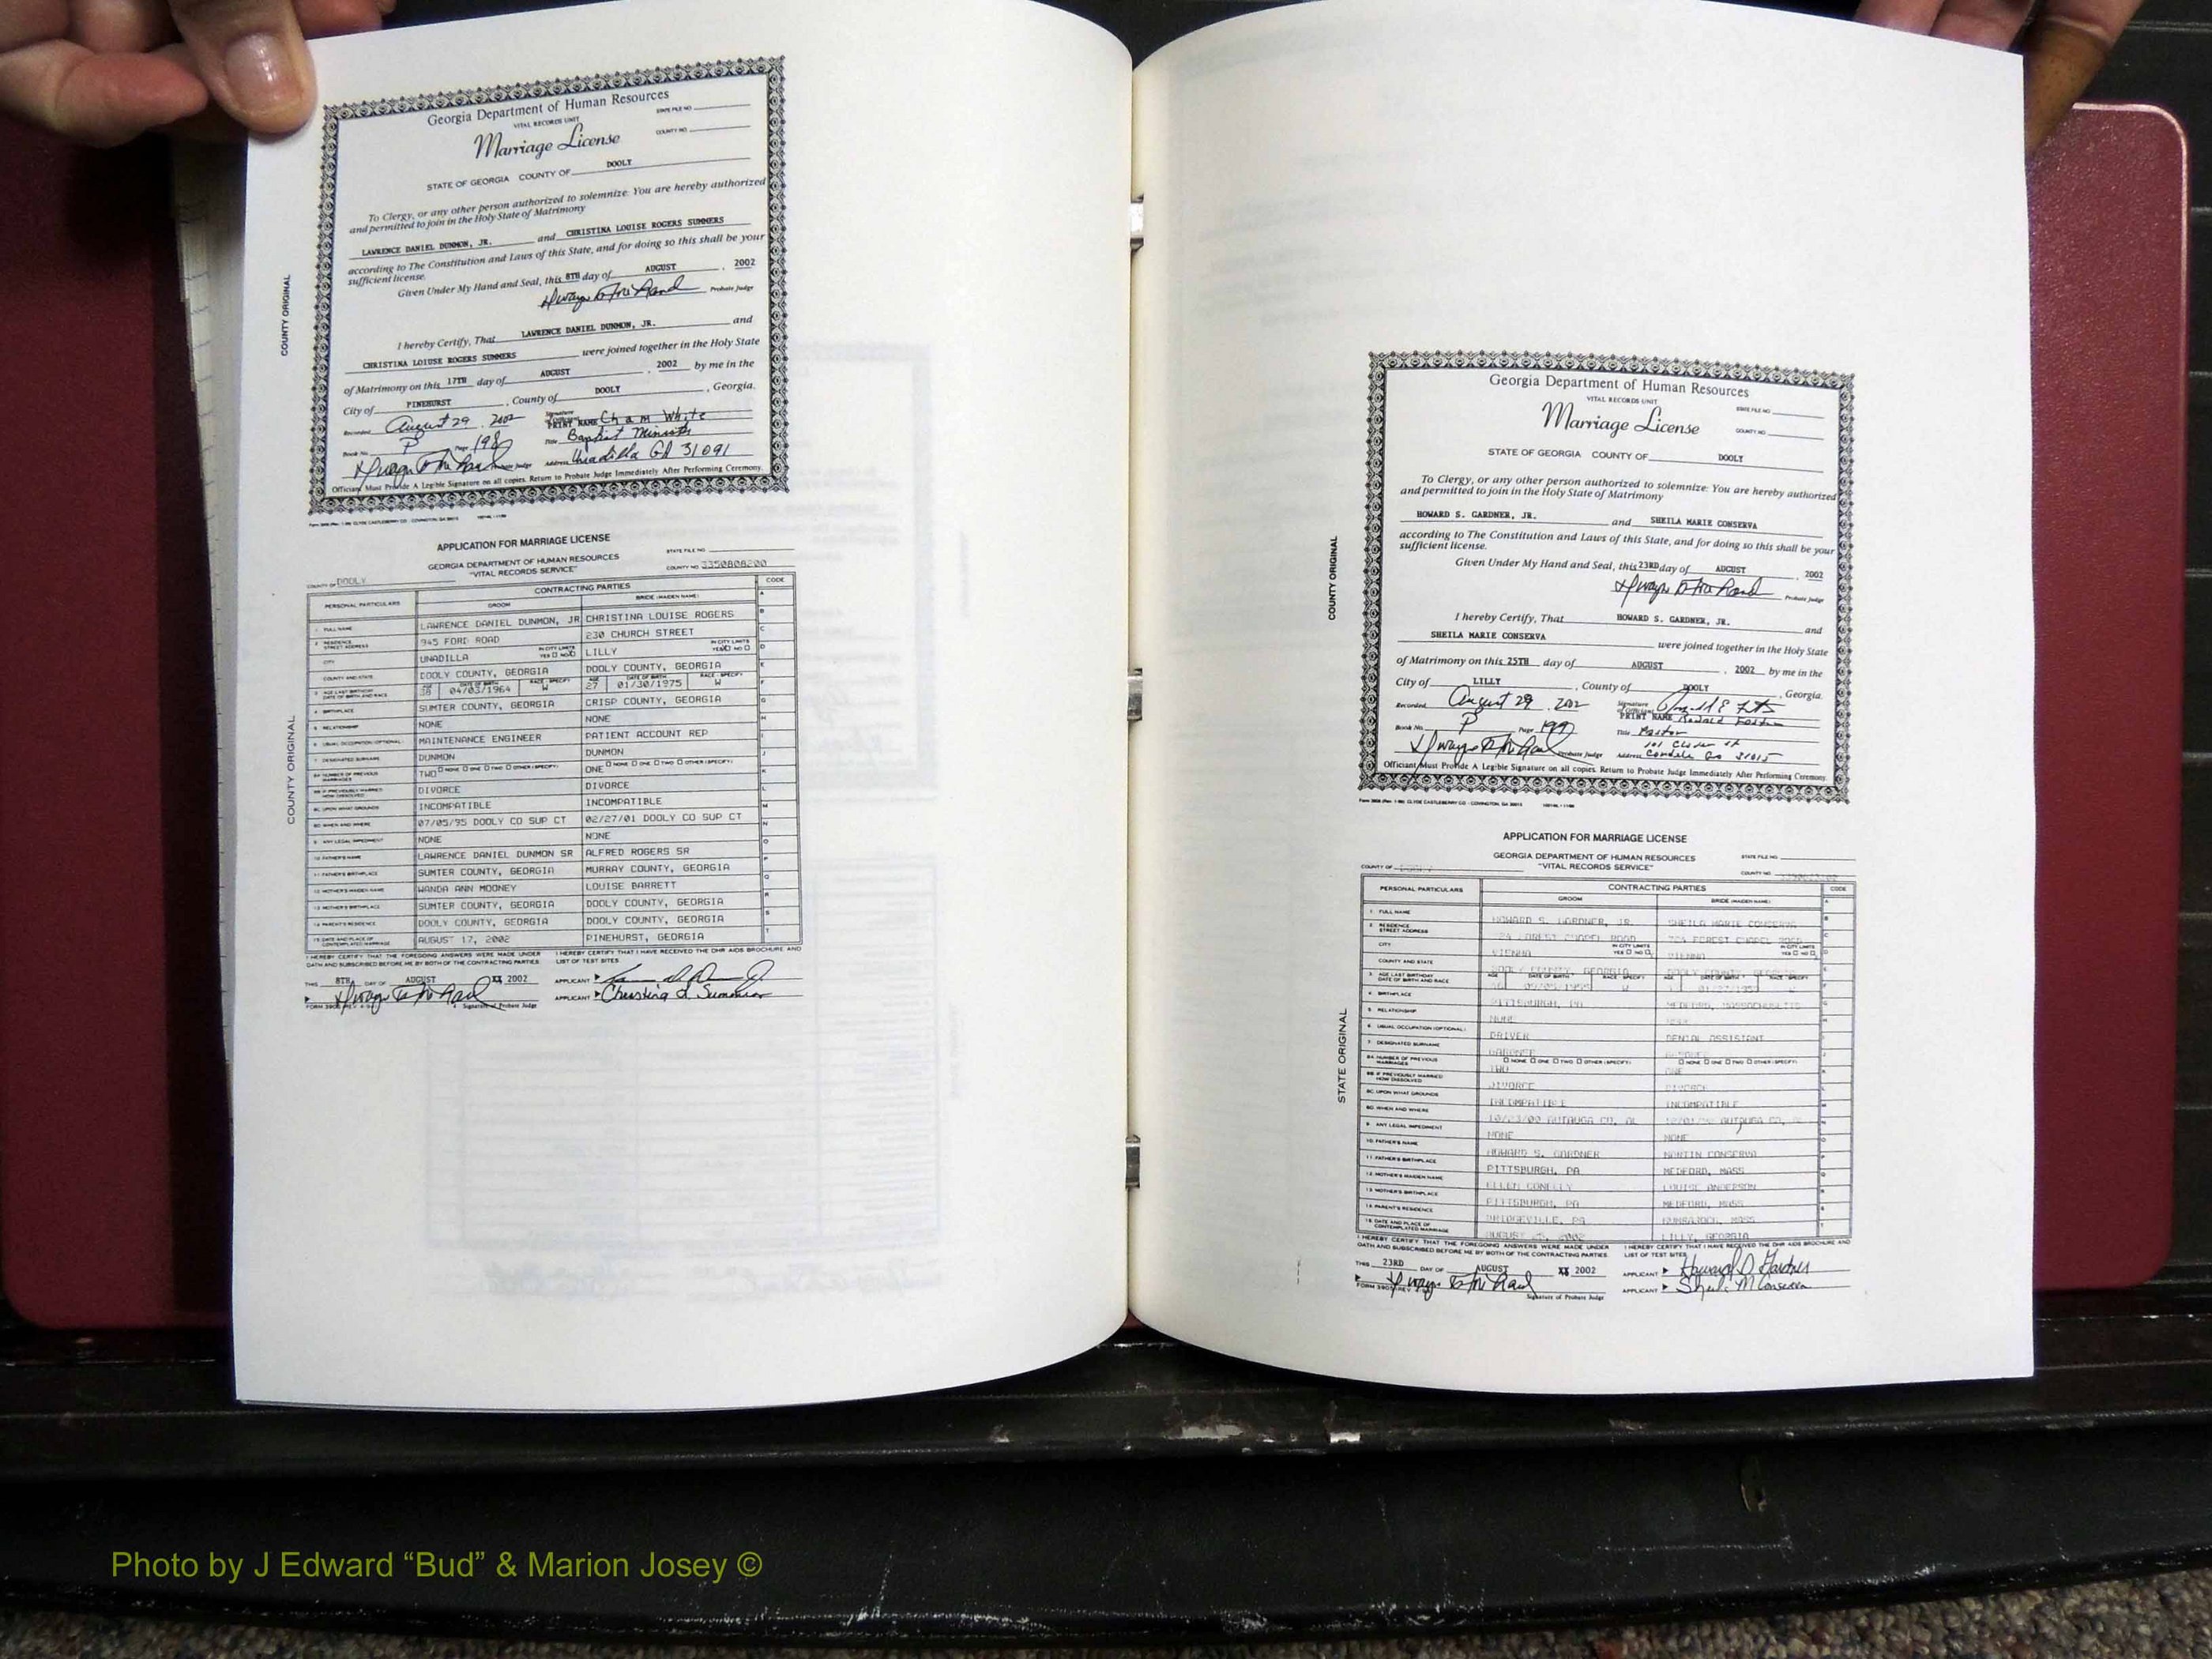 Georgia Department of Human Resources
VITAL RECORDS UNIT
STATE FILE NO.
Marriage License
COUNTY NO.
STATE OF GEORGIA COUNTY OF DOOLY
To Clergy, or any other person authorized to solemnize: You are hereby authorized
and permitted to join in the Holy State of Matrimony
LAWRENCE DANIEL DUNMON, JR. and CHRISTINA LOUISE ROGERS SUMMERS
according to The Constitution and Laws of this State, and for doing so this shall be your
sufficient license.
Given Under My Hand and Seal, this 8TH day of AUGUST, 2002
Probate Judge
I hereby Certify, That LAWRENCE DANIEL DUNMON, JR. and
CHRISTINA LOIUSE ROGERS SUMMERS were joined together in the Holy State
of Matrimony on this 17TH day of AUGUST, 2002 by me in the
City of PINEHURST, County of DOOLY, Georgia.
Recorded August 29, 2002 Signature of Officiant
PRINT NAME Cham White
Book No. P Page 198 Title Baptist Minister
Probate Judge Address Unadilla GA 31091
Officiant Must Provide A Legible Signature on all copies. Return to Probate Judge Immediately After Performing Ceremony.
COUNTY ORIGINAL
APPLICATION FOR MARRIAGE LICENSE
GEORGIA DEPARTMENT OF HUMAN RESOURCES
"VITAL RECORDS SERVICE"
STATE FILE NO.
COUNTY OF DOOLY COUNTY NO. 3350808200
PERSONAL PARTICULARS CONTRACTING PARTIES CODE
GROOM BRIDE (MAIDEN NAME)
1 FULL NAME LAWRENCE DANIEL DUNMON, JR CHRISTINA LOUISE ROGERS
2 RESIDENCE STREET ADDRESS 945 FORD ROAD 230 CHURCH STREET
CITY UNADILLA IN CITY LIMITS YES NO LILLY IN CITY LIMITS YES NO
COUNTY AND STATE DOOLY COUNTY, GEORGIA DOOLY COUNTY, GEORGIA
3 AGE LAST BIRTHDAY DATE OF BIRTH AND RACE 38 04/03/1964 W 27 01/30/1975 W
4 BIRTHPLACE SUMTER COUNTY, GEORGIA CRISP COUNTY, GEORGIA
5 RELATIONSHIP NONE NONE
6 USUAL OCCUPATION (OPTIONAL) MAINTENANCE ENGINEER PATIENT ACCOUNT REP
7 DESIGNATED SURNAME DUNMON DUNMON
8A NUMBER OF PREVIOUS MARRIAGES TWO NONE ONE TWO OTHER (SPECIFY) ONE NONE ONE TWO OTHER (SPECIFY)
8B IF PREVIOUSLY MARRIED HOW DISSOLVED DIVORCE DIVORCE
8C UPON WHAT GROUNDS INCOMPATIBLE INCOMPATIBLE
8D WHEN AND WHERE 07/05/95 DOOLY CO SUP CT 02/27/01 DOOLY CO SUP CT
9 ANY LEGAL IMPEDIMENT NONE NONE
10 FATHER'S NAME LAWRENCE DANIEL DUNMON SR ALFRED ROGERS SR
11 FATHER'S BIRTHPLACE SUMTER COUNTY, GEORGIA MURRAY COUNTY, GEORGIA
12 MOTHER'S MAIDEN NAME WANDA ANN MOONEY LOUISE BARRETT
13 MOTHER'S BIRTHPLACE SUMTER COUNTY, GEORGIA DOOLY COUNTY, GEORGIA
14 PARENT'S RESIDENCE DOOLY COUNTY, GEORGIA DOOLY COUNTY, GEORGIA
15 DATE AND PLACE OF CONTEMPLATED MARRIAGE AUGUST 17, 2002 PINEHURST, GEORGIA
I HEREBY CERTIFY THAT THE FOREGOING ANSWERS WERE MADE UNDER OATH AND SUBSCRIBED BEFORE ME BY BOTH OF THE CONTRACTING PARTIES.
I HEREBY CERTIFY THAT I HAVE RECEIVED THE DHR AIDS BROCHURE AND LIST OF TEST SITES
THIS 8TH DAY OF AUGUST 2002 APPLICANT
Signature of Probate Judge APPLICANT Christina L Summers
COUNTY ORIGINAL
Georgia Department of Human Resources
VITAL RECORDS UNIT
STATE FILE NO.
Marriage License
COUNTY NO.
STATE OF GEORGIA COUNTY OF DOOLY
To Clergy, or any other person authorized to solemnize: You are hereby authorized
and permitted to join in the Holy State of Matrimony
HOWARD S. GARDNER, JR. and SHEILA MARIE CONSERVA
according to The Constitution and Laws of this State, and for doing so this shall be your
sufficient license.
Given Under My Hand and Seal, this 23RD day of AUGUST, 2002
Probate Judge
I hereby Certify, That HOWARD S. GARDNER, JR. and
SHEILA MARIE CONSERVA were joined together in the Holy State
of Matrimony on this 25TH day of AUGUST, 2002 by me in the
City of LILLY, County of DOOLY, Georgia.
Recorded August 29, 2002 Signature of Officiant
PRINT NAME Ronald
Book No. P Page 199 Title Pastor
Probate Judge Address Cordele Ga 31015
Officiant Must Provide A Legible Signature on all copies. Return to Probate Judge Immediately After Performing Ceremony.
COUNTY ORIGINAL
APPLICATION FOR MARRIAGE LICENSE
GEORGIA DEPARTMENT OF HUMAN RESOURCES
"VITAL RECORDS SERVICE"
STATE FILE NO.
COUNTY OF COUNTY NO.
PERSONAL PARTICULARS CONTRACTING PARTIES CODE
GROOM BRIDE (MAIDEN NAME)
1 FULL NAME HOWARD S. GARDNER, JR. SHEILA MARIE CONSERVA
2 RESIDENCE STREET ADDRESS FOREST CHAPEL ROAD FOREST CHAPEL ROAD
CITY VIENNA IN CITY LIMITS YES NO VIENNA IN CITY LIMITS YES NO
COUNTY AND STATE DOOLY COUNTY, GEORGIA DOOLY COUNTY, GEORGIA
3 AGE LAST BIRTHDAY DATE OF BIRTH AND RACE
4 BIRTHPLACE PITTSBURGH, PA MEDFORD, MASSACHUSETTS
5 RELATIONSHIP NONE
6 USUAL OCCUPATION (OPTIONAL) DRIVER DENTAL ASSISTANT
7 DESIGNATED SURNAME GARDNER
8A NUMBER OF PREVIOUS MARRIAGES TWO NONE ONE TWO OTHER (SPECIFY) ONE NONE ONE TWO OTHER (SPECIFY)
8B IF PREVIOUSLY MARRIED HOW DISSOLVED DIVORCE DIVORCE
8C UPON WHAT GROUNDS INCOMPATIBLE INCOMPATIBLE
8D WHEN AND WHERE AUTAUGA CO, AL AUTAUGA CO,
9 ANY LEGAL IMPEDIMENT NONE NONE
10 FATHER'S NAME HOWARD S. GARDNER MARTIN CONSERVA
11 FATHER'S BIRTHPLACE PITTSBURGH, PA MEDFORD, MASS
12 MOTHER'S MAIDEN NAME ELLEN CONEELY LOUISE ANDERSON
13 MOTHER'S BIRTHPLACE PITTSBURGH, PA MEDFORD, MASS
14 PARENT'S RESIDENCE BRIDGEVILLE, PA MASS
15 DATE AND PLACE OF CONTEMPLATED MARRIAGE AUGUST 25, 2002 LILLY, GEORGIA
I HEREBY CERTIFY THAT THE FOREGOING ANSWERS WERE MADE UNDER OATH AND SUBSCRIBED BEFORE ME BY BOTH OF THE CONTRACTING PARTIES.
I HEREBY CERTIFY THAT I HAVE RECEIVED THE DHR AIDS BROCHURE AND LIST OF TEST SITES
THIS 23RD DAY OF AUGUST 2002 APPLICANT Howard S Gardner
Signature of Probate Judge APPLICANT Sheila M Conserva
STATE ORIGINAL
Photo by J Edward “Bud” & Marion Josey ©